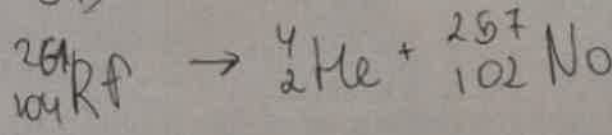 ²⁶¹₁₀₄Rf → ⁴₂He + ²⁵⁷₁₀₂No